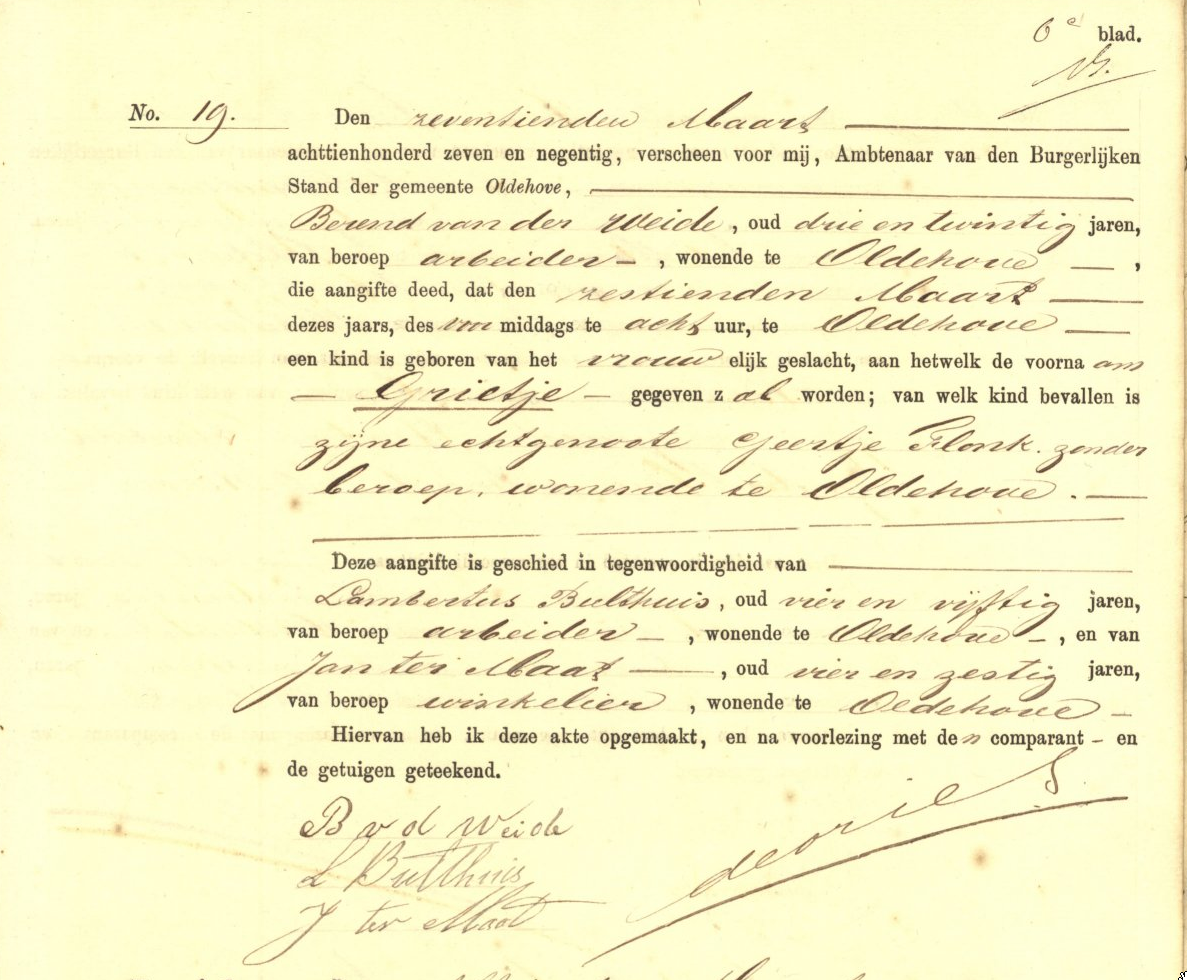 6e blad.
No. 19. Den zeventienden Maart
achttienhonderd zeven en negentig, verscheen voor mij, Ambtenaar van den Burgerlijken
Stand der gemeente Oldehove,
Berend van der Weide, oud drie en twintig jaren,
van beroep arbeider, wonende te Oldehove,
die aangifte deed, dat den zestienden Maart
dezes jaars, des voor middags te acht uur, te Oldehove
een kind is geboren van het vrouwelijk geslacht, aan hetwelk de voornaam
Grietje gegeven zal worden; van welk kind bevallen is
zijne echtgenoote Geertje Flonk. zonder
beroep. wonende te Oldehove.
Deze aangifte is geschied in tegenwoordigheid van
Lambertus Bulthuis, oud vier en vijftig jaren,
van beroep arbeider, wonende te Oldehove, en van
Jan ter Maat, oud vier en zestig jaren,
van beroep winkelier, wonende te Oldehove
Hiervan heb ik deze akte opgemaakt, en na voorlezing met den comparant en
de getuigen geteekend.
B v d Weide
L Bulthuis
J ter Maat
de Vries